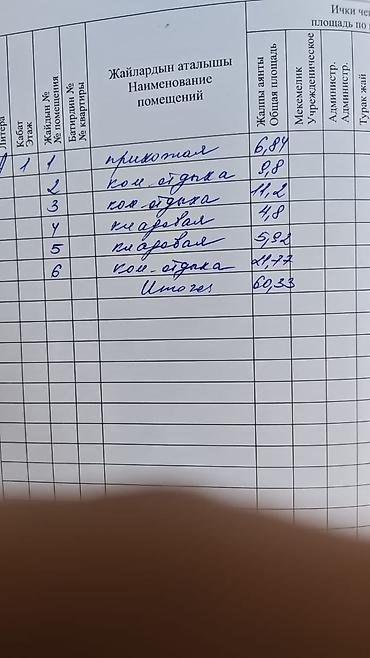 Ички
площадь по
Литера
Кабат
Этаж
Жайдын №
№ помещения
Батирдин №
№ квартиры
Жайлардын аталышы
Наименование
помещений
Жалпы аянты
Общая площадь
Мекемелик
Учрежденическое
Администр.
Администр.
Турак жай
1 1 прихожая 6,84
2 ком. отдыха 9,8
3 ком. отдыха 11,2
4 кладовая 4,8
5 кладовая 5,92
6 ком. отдыха 21,77
Итого 60,33